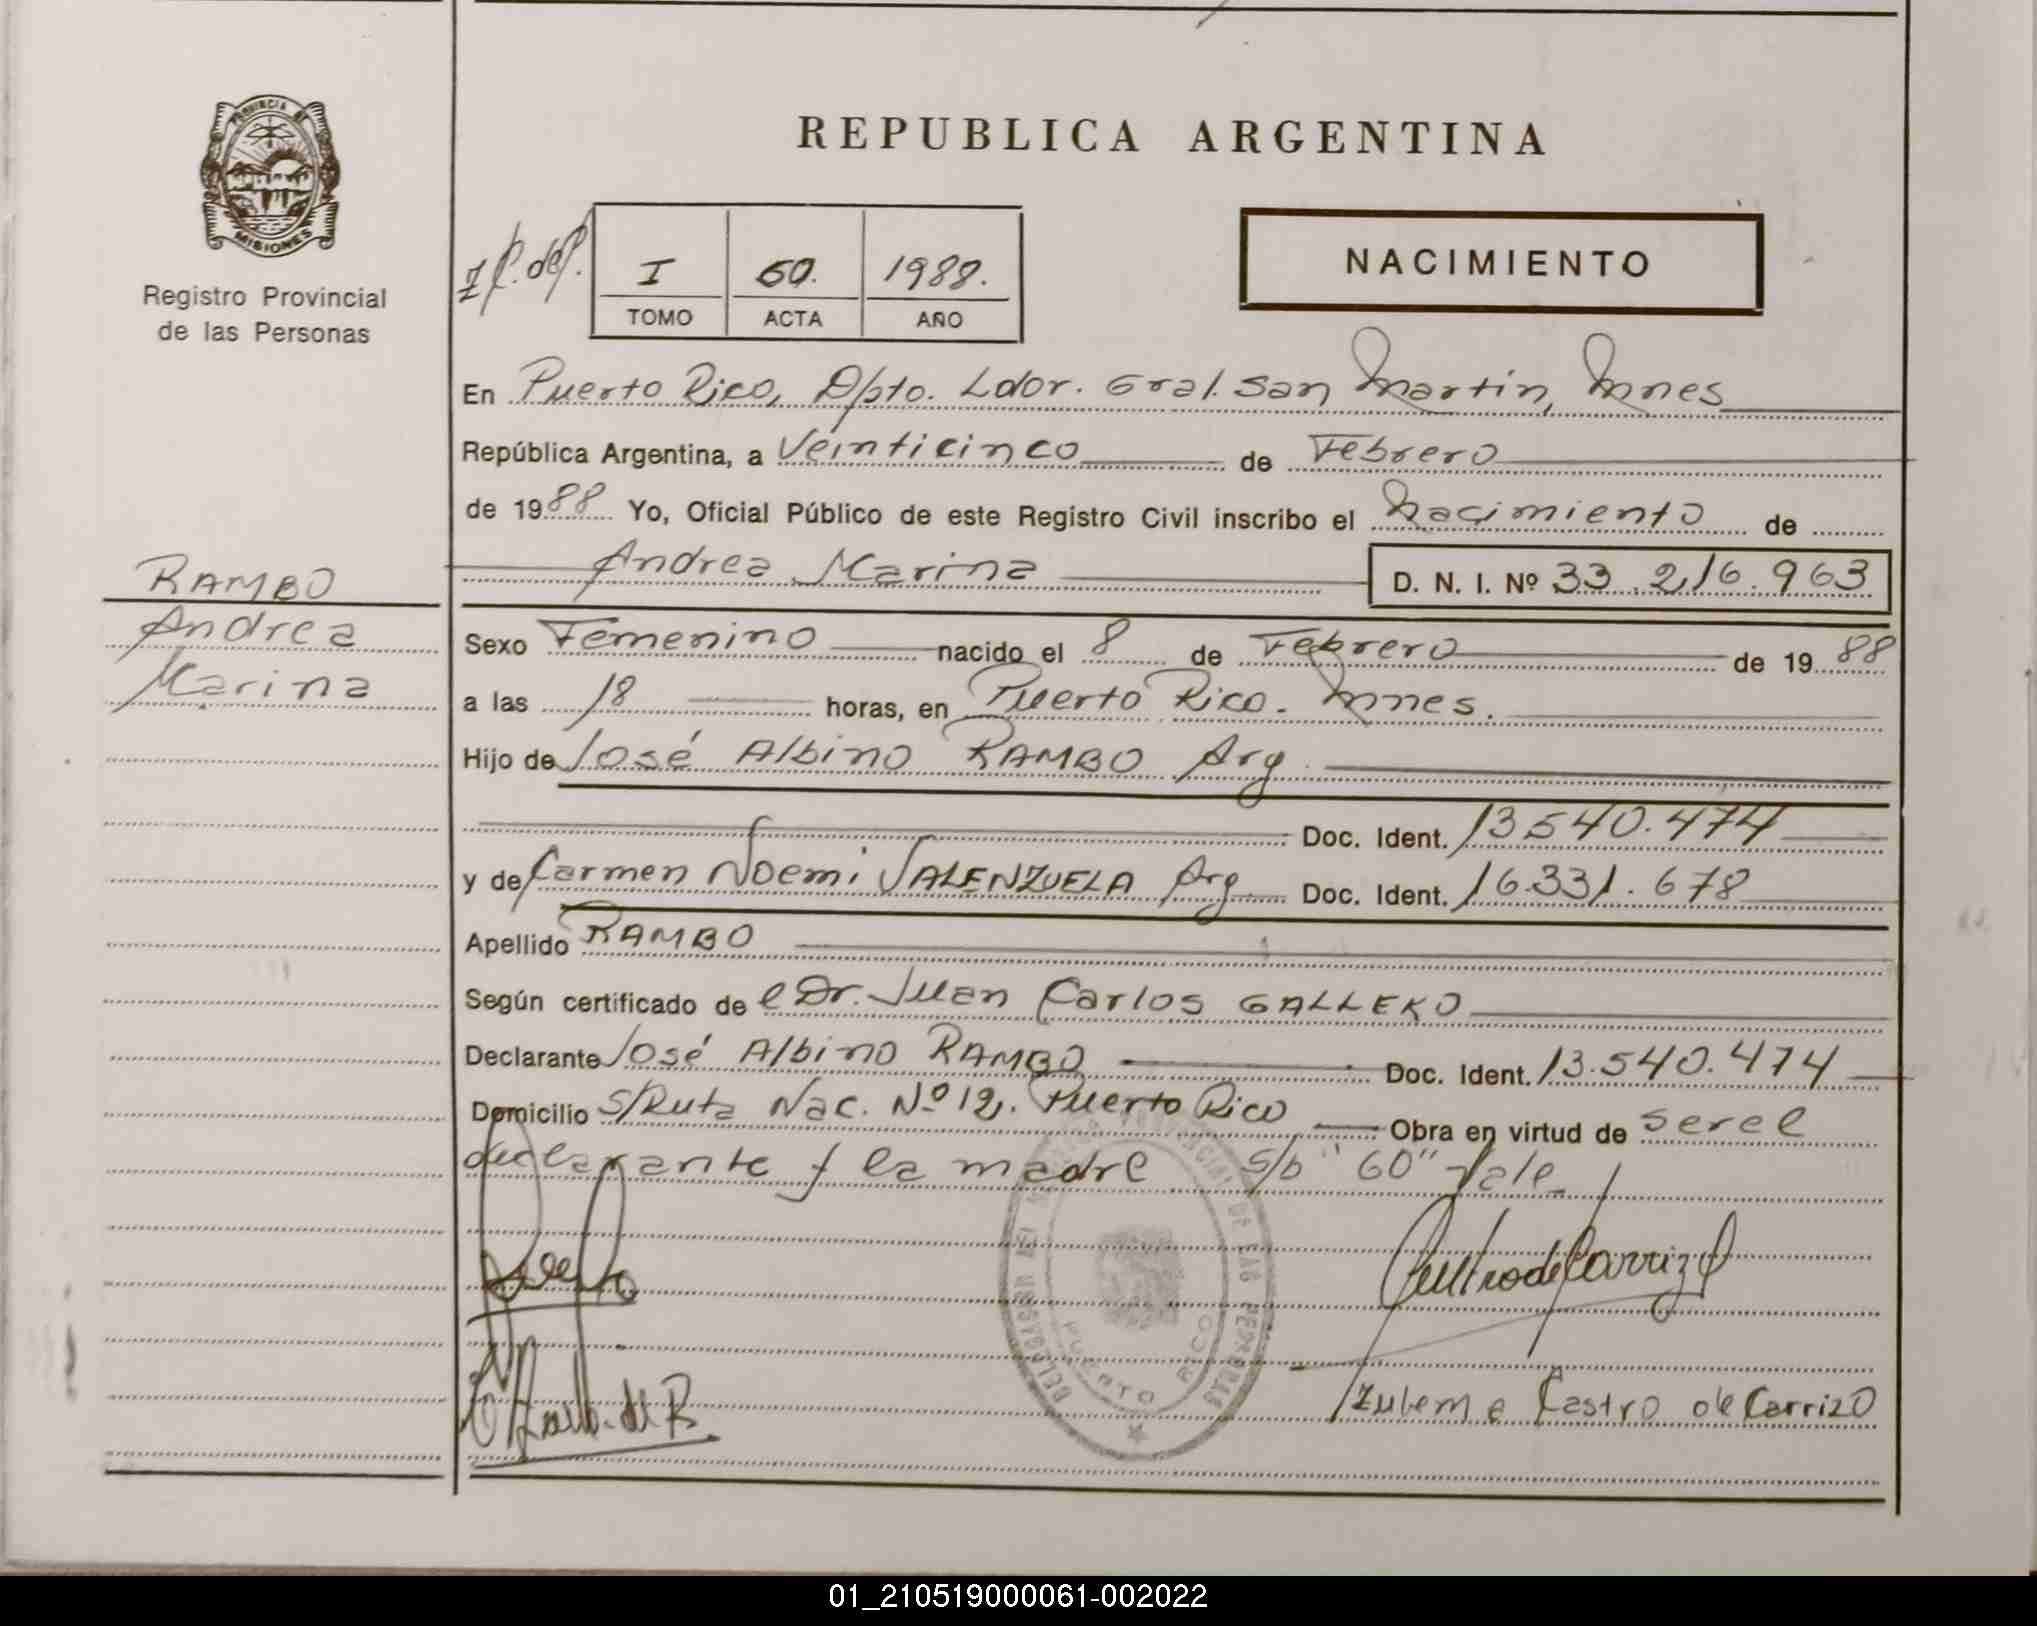 PROVINCIA DE
MISIONES
Registro Provincial
de las Personas
REPUBLICA ARGENTINA
I 60. 1988.
TOMO ACTA AÑO
NACIMIENTO
En Puerto Rico, Dpto. Ldor. Gral. San Martin, Mnes
República Argentina, a Veinticinco de Febrero
de 1988 Yo, Oficial Público de este Registro Civil inscribo el Nacimiento de
Andrea Marina D. N. I. Nº 33.216.963
RAMBO
Andrea
Marina
Sexo Femenino nacido el 8 de Febrero de 1988
a las 18 horas, en Puerto Rico. Mnes.
Hijo de José Albino RAMBO Arg.
Doc. Ident. 13.540.474
y de Carmen Noemi VALENZUELA Arg. Doc. Ident. 16.331.678
Apellido RAMBO
Según certificado de el Dr. Juan Carlos GALLEKO
Declarante José Albino RAMBO Doc. Ident. 13.540.474
Domicilio S/Ruta Nac. Nº 12. Puerto Rico Obra en virtud de ser el
declarante y la madre s/b "60" Vale
DELEGACION DEL REGISTRO PROVINCIAL DE LAS PERSONAS
PUERTO RICO
Castro de Carrizo
Zulema Castro de Carrizo
01_210519000061-002022